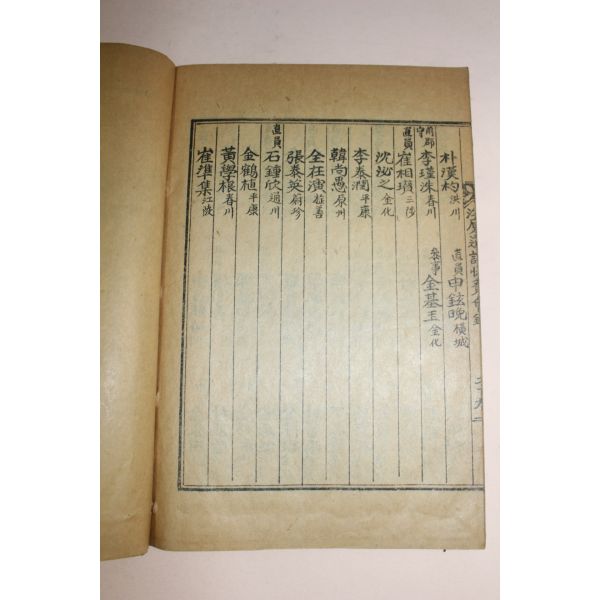 朴漢杓洪川 直員申鉉晩橫城
前郡守李瑾洙春川 參事金基玉金化
直員崔相瓚三陟
沈泌之金化
李泰潤平康
韓尚愚原州
全在演旌善
張泰英蔚珍
直員石鍾欣通川
金鶴植平康
黃學根春川
崔準集江陵